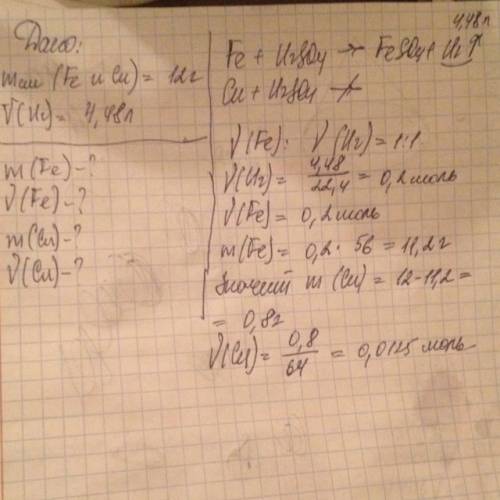 Дано:
mсм (Fe и Cu) = 12г
V(H2) = 4,48л
m(Fe) - ?
ν(Fe) - ?
m(Cu) - ?
ν(Cu) - ?
4,48л
Fe + H2SO4 → FeSO4 + H2↑
Cu + H2SO4 ↛
ν(Fe) : ν(H2) = 1:1
ν(H2) = 4,48/22,4 = 0,2 моль
ν(Fe) = 0,2 моль
m(Fe) = 0,2 · 56 = 11,2 г
Значит m(Cu) = 12-11,2 =
= 0,8г
ν(Cu) = 0,8/64 = 0,0125 моль